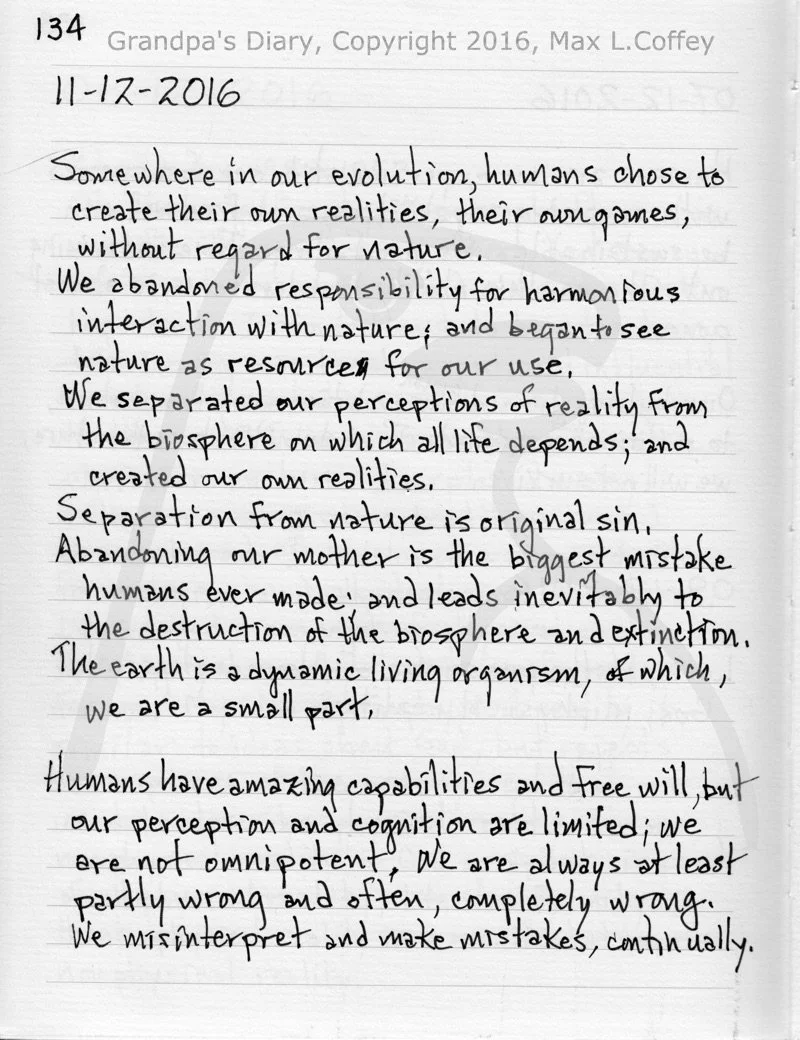 134
Grandpa's Diary, Copyright 2016, Max L.Coffey
11-12-2016
Somewhere in our evolution, humans chose to
create their own realities, their own games,
without regard for nature.
We abandoned responsibility for harmonious
interaction with nature; and began to see
nature as resources for our use.
We separated our perceptions of reality from
the biosphere on which all life depends; and
created our own realities.
Separation from nature is original sin.
Abandoning our mother is the biggest mistake
humans ever made; and leads inevitably to
the destruction of the biosphere and extinction.
The earth is a dynamic living organism, of which,
we are a small part.
Humans have amazing capabilities and free will, but
our perception and cognition are limited; we
are not omnipotent. We are always at least
partly wrong and often, completely wrong.
We misinterpret and make mistakes, continually.